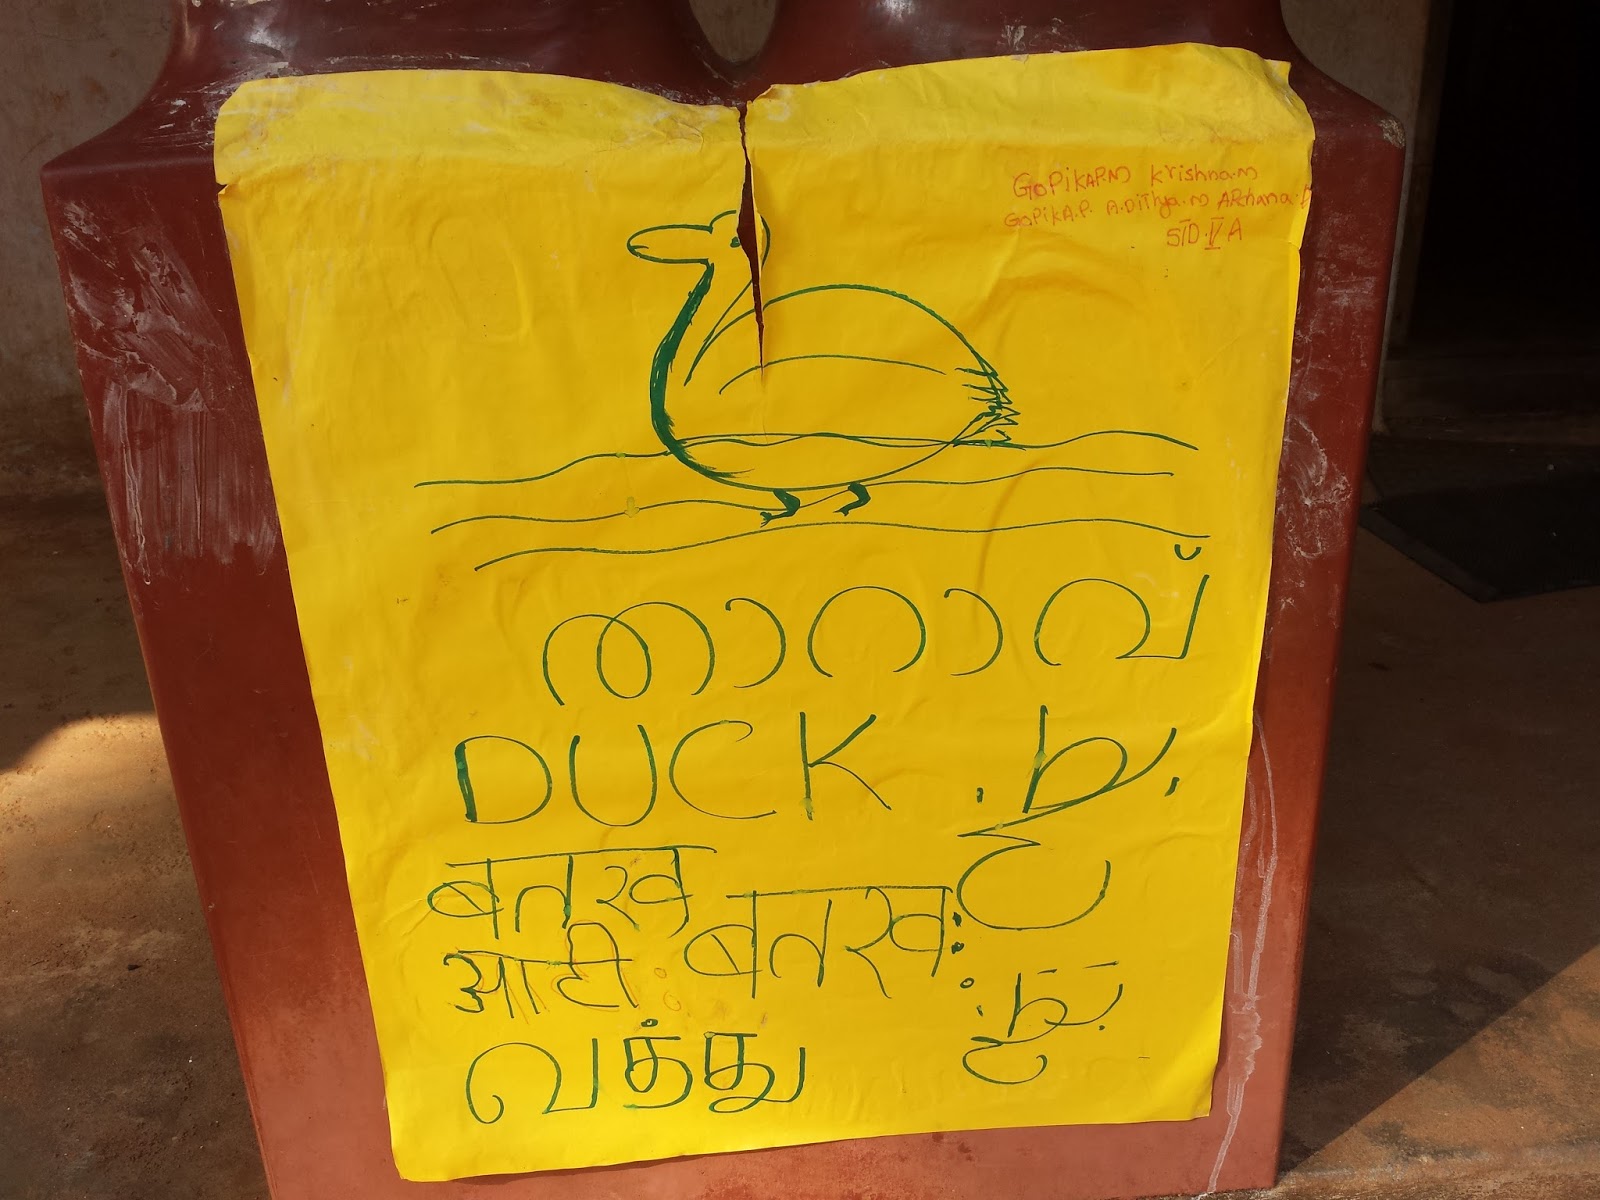 GOPIKAP.M Krishna.M
GOPIKA.P. A.DiThya.M ARchana.P
STD.V A
താറാവ്
DUCK
बतख
बतखः
आही
வத்து